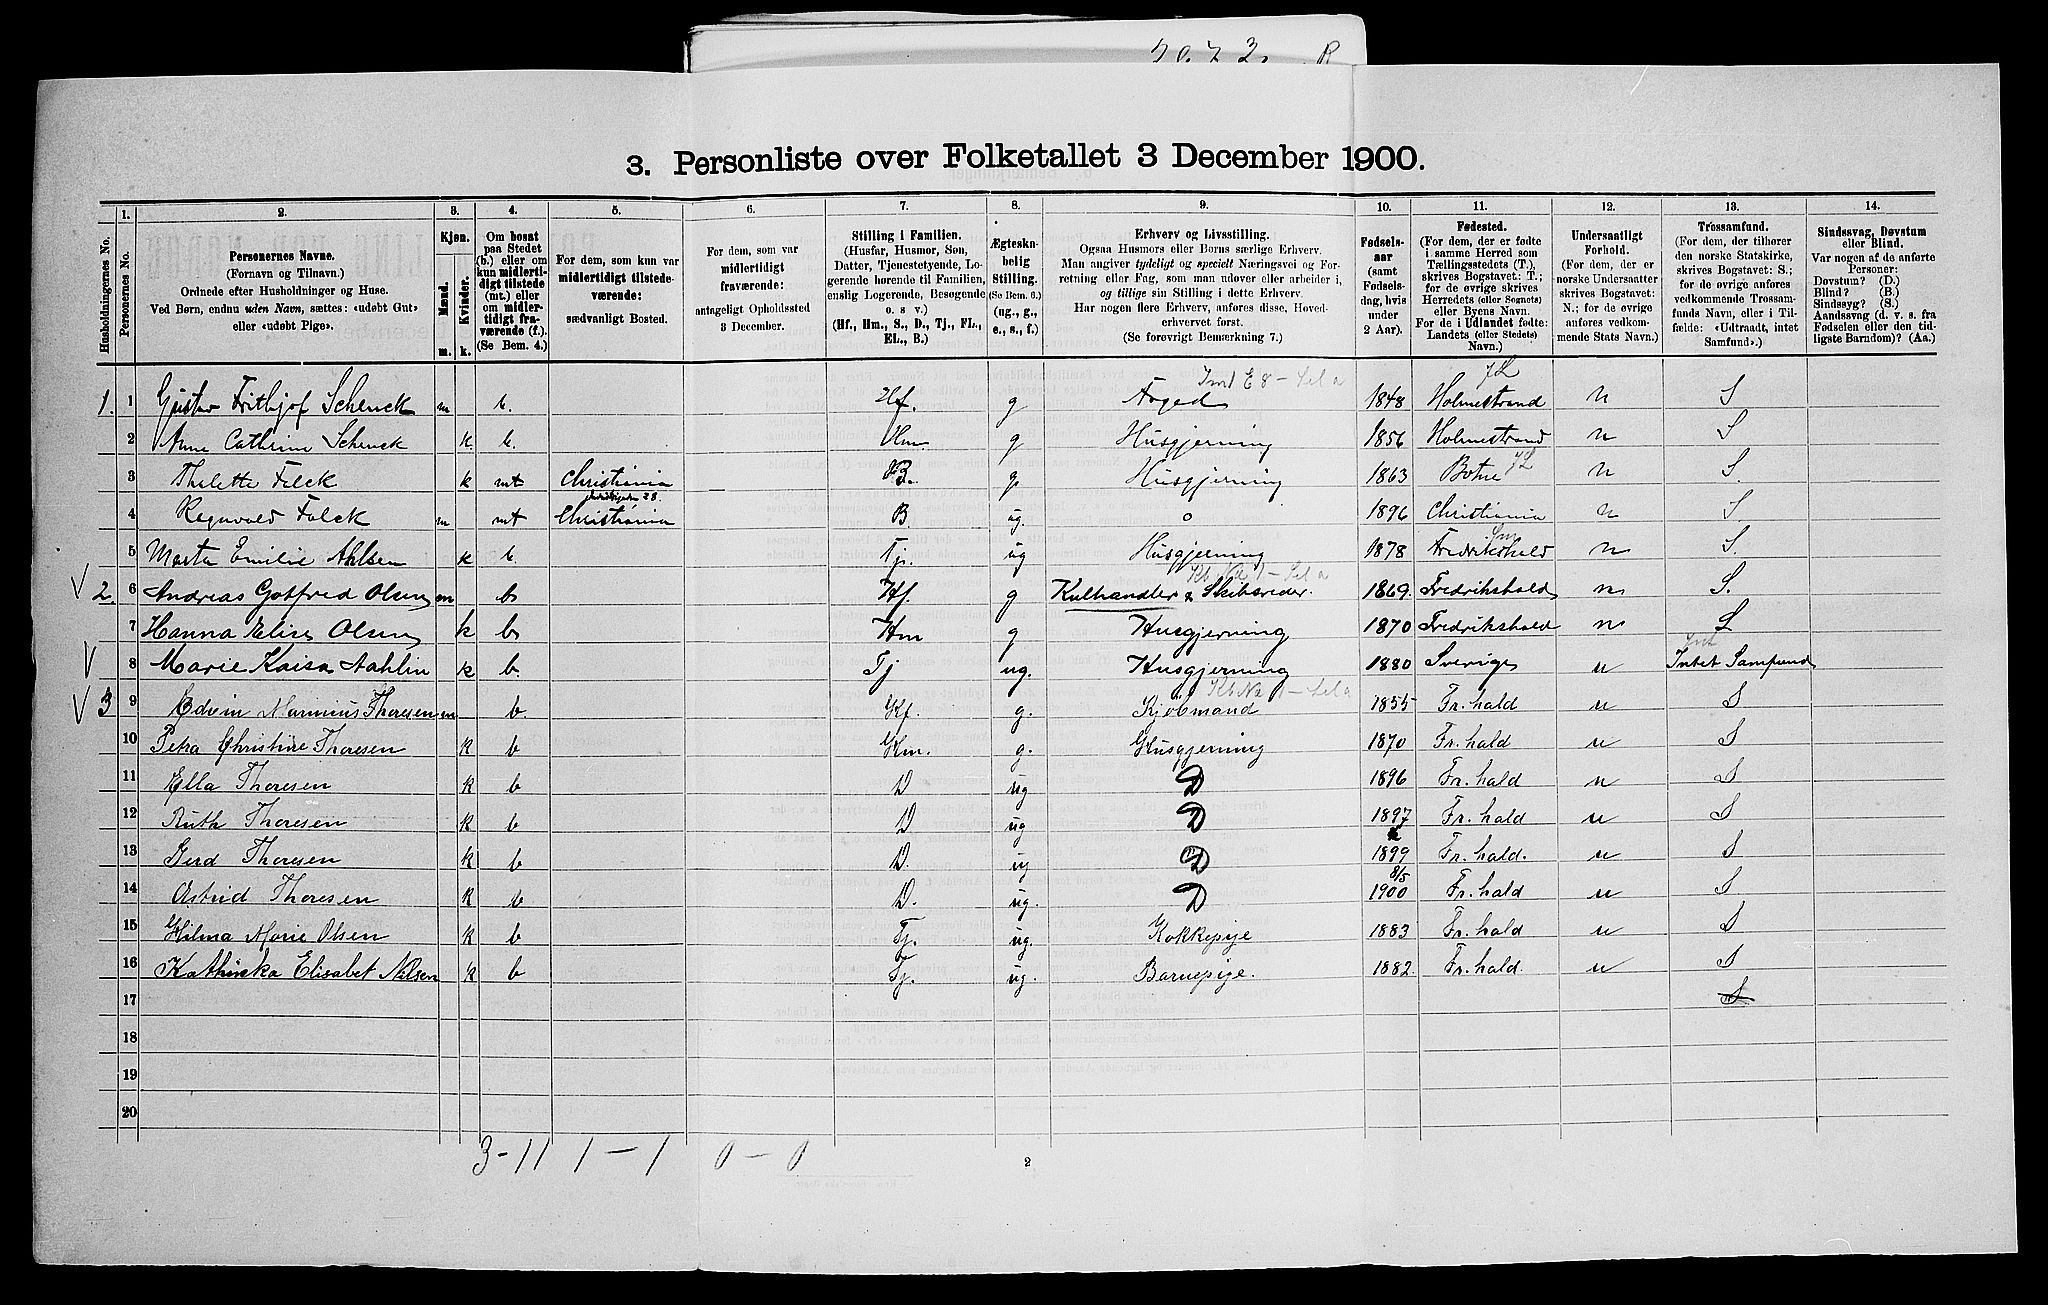 3. Personliste over Folketallet 3 December 1900.
Husholdningernes No.
1.
Personernes No.
2.
Personernes Navne.
(Fornavn og Tilnavn.)
Ordnede efter Husholdninger og Huse.
Ved Børn, endnu uden Navn, sættes: «udøbt Gut»
eller «udøbt Pige».
3.
Kjøn.
Mænd.
Kvinder.
m.
k.
4.
Om bosat
paa Stedet
(b.) eller om
kun midlerti-
digt tilstede
(mt.) eller
om midler-
tidigt fra-
værende (f.).
(Se Bem. 4.)
5.
For dem, som kun var
midlertidigt tilstede-
værende:
sædvanligt Bosted.
6.
For dem, som var
midlertidigt
fraværende:
antageligt Opholdssted
3 December.
7.
Stilling i Familien.
(Husfar, Husmor, Søn,
Datter, Tjenestetyende, Lo-
gerende hørende til Familien,
enslig Logerende, Besøgende
o. s v.)
(Hf., Hm., S., D., Tj., FL.,
EL., B.)
8.
Ægteska-
belig
Stilling.
(Se Bem. 6.)
(ug., g.,
e., s., f.)
9.
Erhverv og Livsstilling.
Ogsaa Husmors eller Børns særlige Erhverv.
Man angiver tydeligt og specielt Næringsvei og For-
retning eller Fag, som man udøver eller arbeider i,
og tillige sin Stilling i dette Erhverv.
Har nogen flere Erhverv, anføres disse, Hoved-
erhvervet først.
(Se forøvrigt Bemærkning 7.)
10.
Fødsels-
aar
(samt
Fødsels-
dag, hvis
under
2 Aar).
11.
Fødested.
(For dem, der er fødte
i samme Herred som
Tællingsstedets (T.),
skrives Bogstavet: T.;
for de øvrige skrives
Herredets (eller Sognets)
eller Byens Navn.
For de i Udlandet fødte:
Landets (eller Stedets)
Navn.)
12.
Undersaatligt
Forhold.
(For dem, der er
norske Undersaatter
skrives Bogstavet:
N.; for de øvrige
anføres vedkom-
mende Stats Navn.)
13.
Trossamfund.
(For dem, der tilhører
den norske Statskirke,
skrives Bogstavet: S.;
for de øvrige anføres
vedkommende Trossam-
funds Navn, eller i Til-
fælde: «Udtraadt, intet
Samfund».)
14.
Sindssvag, Døvstum
eller Blind.
Var nogen af de anførte
Personer:
Døvstum? (D.)
Blind? (B.)
Sindssyg? (S.)
Aandssvag (d. v. s. fra
Fødselen eller den tid-
ligste Barndom)? (Aa.)
1. 1 Gustav Frithjof Schenck m b. Hf. g Foged 1848 Holmestrand n S
2 Anne Cathrine Schenck k. b. Hm g Husgjerning 1856 Holmestrand n S
3 Thalette Falck k mt Christiania B. g Husgjerning 1863 Botne n S.
4 Regnvald Falck m mt Christiania B ug. o 1896 Christiania n S
5 Marta Emilie Ahlsen k b Tj. ug Husgjerning 1878 Fredrikshald n S.
2. 6 Andreas Gotfred Olsen m b Hf. g Kulhandler & Skibsreder. 1869. Fredrikshald n S.
7 Hanna Elise Olsen k b Hm g Husgjerning 1870 Fredrikshald n S
8 Marie Kaisa Aahlin k b. Tj ug. Husgjerning 1880 Sverige n Intet Samfund
3 9 Edvin Marinius Thoresen m b. Hf. g. Kjøbmand 1855 Fr. hald n S
10 Petra Christine Thoresen k b Hm. g. Husgjerning 1870 Fr. hald n S
11 Ella Thoresen k b D ug D 1896 Fr. hald n S
12 Ruth Thoresen k b D. ug D 1897 Fr. hald n S
13 Gerd Thoresen k b D. ug D 1899 Fr. hald. n S
14 Astrid Thoresen k b. D. ug. D 8/5 1900 Fr. hald n S
15 Hilma Marie Olsen k b Tj. ug. Kokkepige 1883 Fr. hald n S
16 Kathinka Elisabet Nilsen k b Tj. ug. Barnepige. 1882. Fr. hald. n S
17 S
18
19
20
3-11 1-1 0-0
2